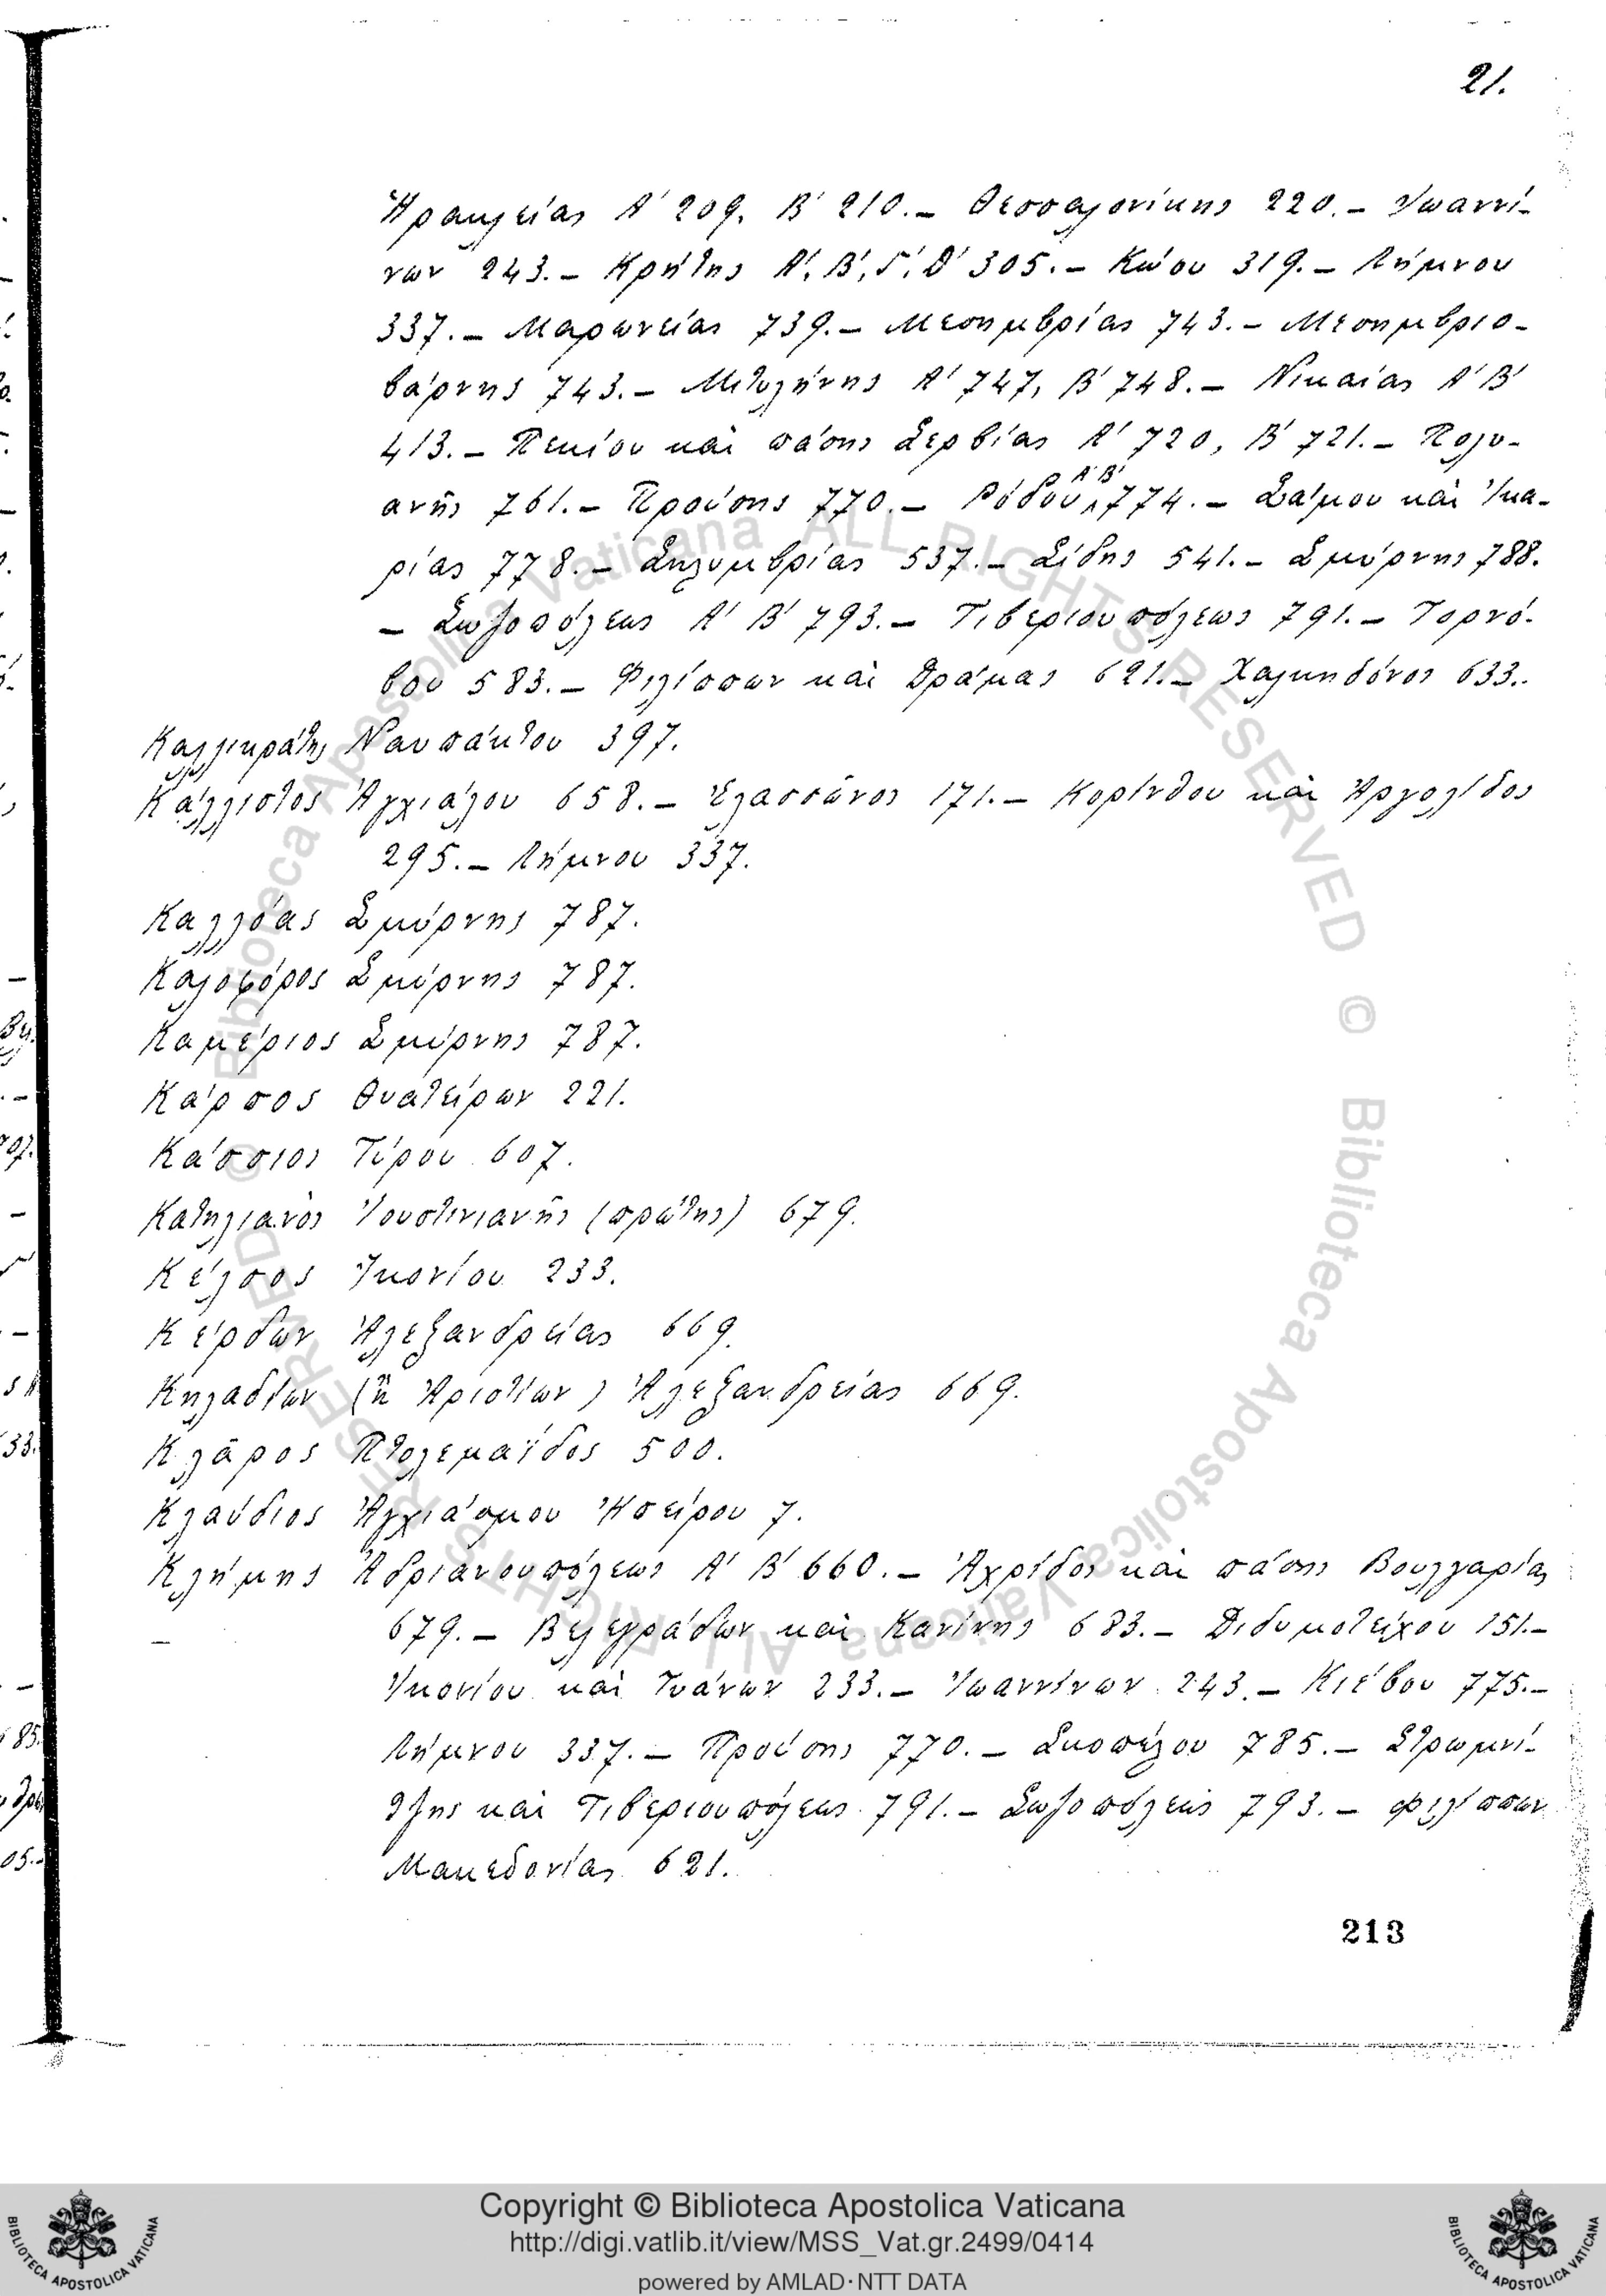 21.
Ἡρακλείας Α' 209, Β' 210.– Θεσσαλονίκης 220.– Ἰωαννί-
νων 243.– Κρήτης Α', Β', Γ', Δ' 305.– Κώου 319.– Λήμνου
337.– Μαρωνείας 739.– Μεσημβρίας 743.– Μεσημβριο-
βάρνης 743.– Μιτυλήνης Α' 747, Β' 748.– Νικαίας Α' Β'
413.– Πεκίου καὶ πάσης Σερβίας Α' 720, Β' 721.– Πολυ-
ανῆς 761.– Προύσης 770.– Ρόδου Α' Β' 774.– Σάμου καὶ Ἰκα-
ρίας 778.– Σηλυμβρίας 537.– Σίδης 541.– Σμύρνης 788.
– Σωζοπόλεως Α' Β' 793.– Τιβεριουπόλεως 791.– Τορνό-
βου 583.– Φιλίππων καὶ Δράμας 621.– Χαλκηδόνος 633.
Καλλικράτης Ναυπάκτου 397.
Κάλλιστος Ἀγχιάλου 658.– Ἐλασσῶνος 171.– Κορίνθου καὶ Ἀργολίδος
295.– Λήμνου 337.
Καλλόας Σμύρνης 787.
Καλοφόρος Σμύρνης 787.
Καμέριος Σμύρνης 787.
Κάρπος Θυατείρων 221.
Κάσσιος Τύρου 607.
Κατηλιανὸς Ἰουστινιανῆς (πρώτης) 679.
Κέλσος Ἰκονίου 233.
Κέρδων Ἀλεξανδρείας 669.
Κηλαδίων (ἢ Ἀριστίων) Ἀλεξανδρείας 669.
Κλᾶρος Πτολεμαΐδος 500.
Κλαύδιος Ἀγχιάσμου Ἠπείρου 7.
Κλήμης Ἀδριανουπόλεως Α' Β' 660.– Ἀχρίδος καὶ πάσης Βουλγαρίας
679.– Βελεγράδων καὶ Κανίνης 683.– Διδυμοτείχου 151.–
Ἰκονίου καὶ Τυάνων 233.– Ἰωαννίνων 243.– Κιέβου 775.–
Λήμνου 337.– Προύσης 770.– Σκοπέλου 785.– Στρωμνί-
τζης καὶ Τιβεριουπόλεως 791.– Σωζοπόλεως 793.– Φιλίππων
Μακεδονίας 621.
213
Copyright © Biblioteca Apostolica Vaticana
http://digi.vatlib.it/view/MSS_Vat.gr.2499/0414
powered by AMLAD·NTT DATA